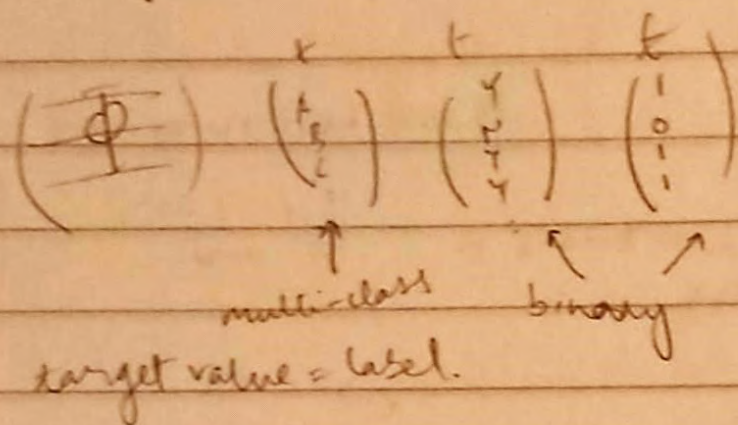 t t t
(Φ) (A B C) (Y N Y Y) (1 0 1 1)
multi-class binary
target value = label.